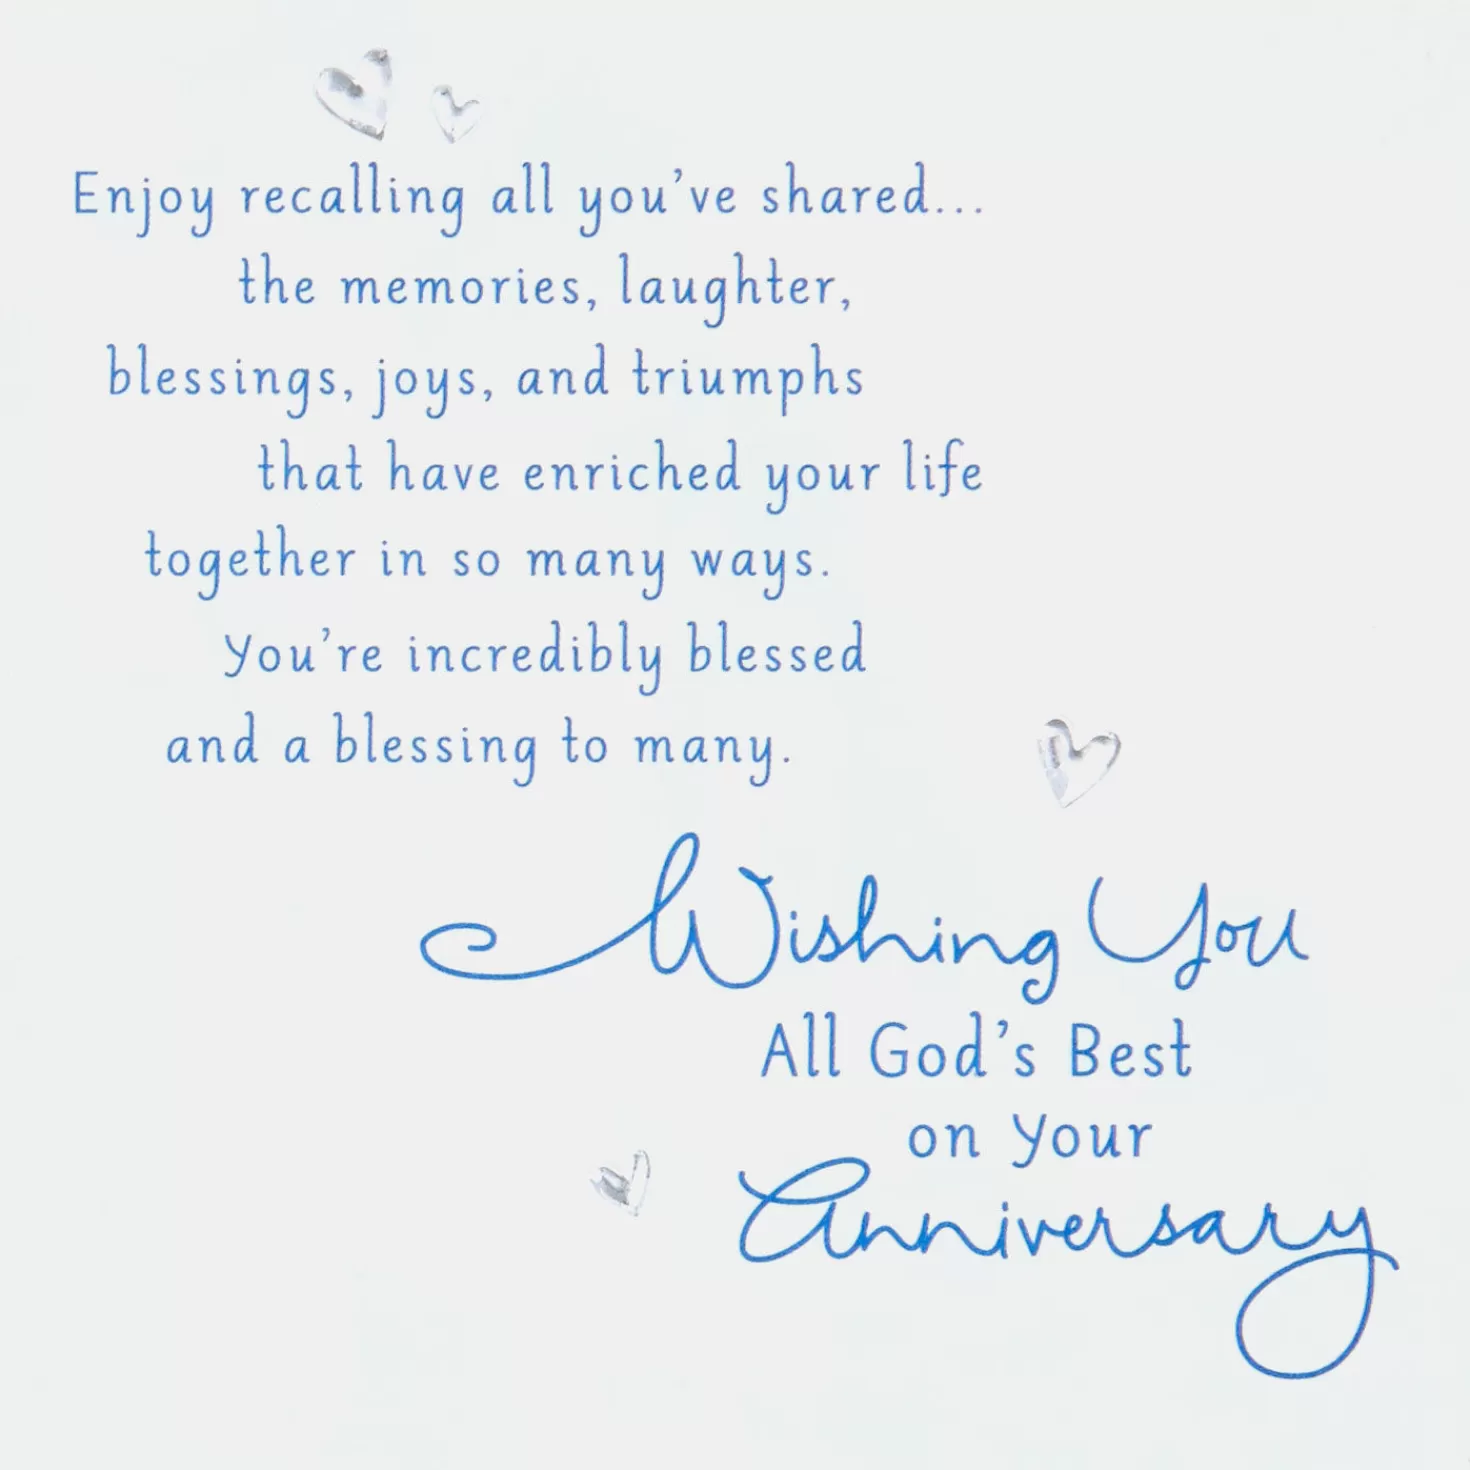 Enjoy recalling all you've shared...
the memories, laughter,
blessings, joys, and triumphs
that have enriched your life
together in so many ways.
You're incredibly blessed
and a blessing to many.
Wishing You
All God's Best
on Your
Anniversary